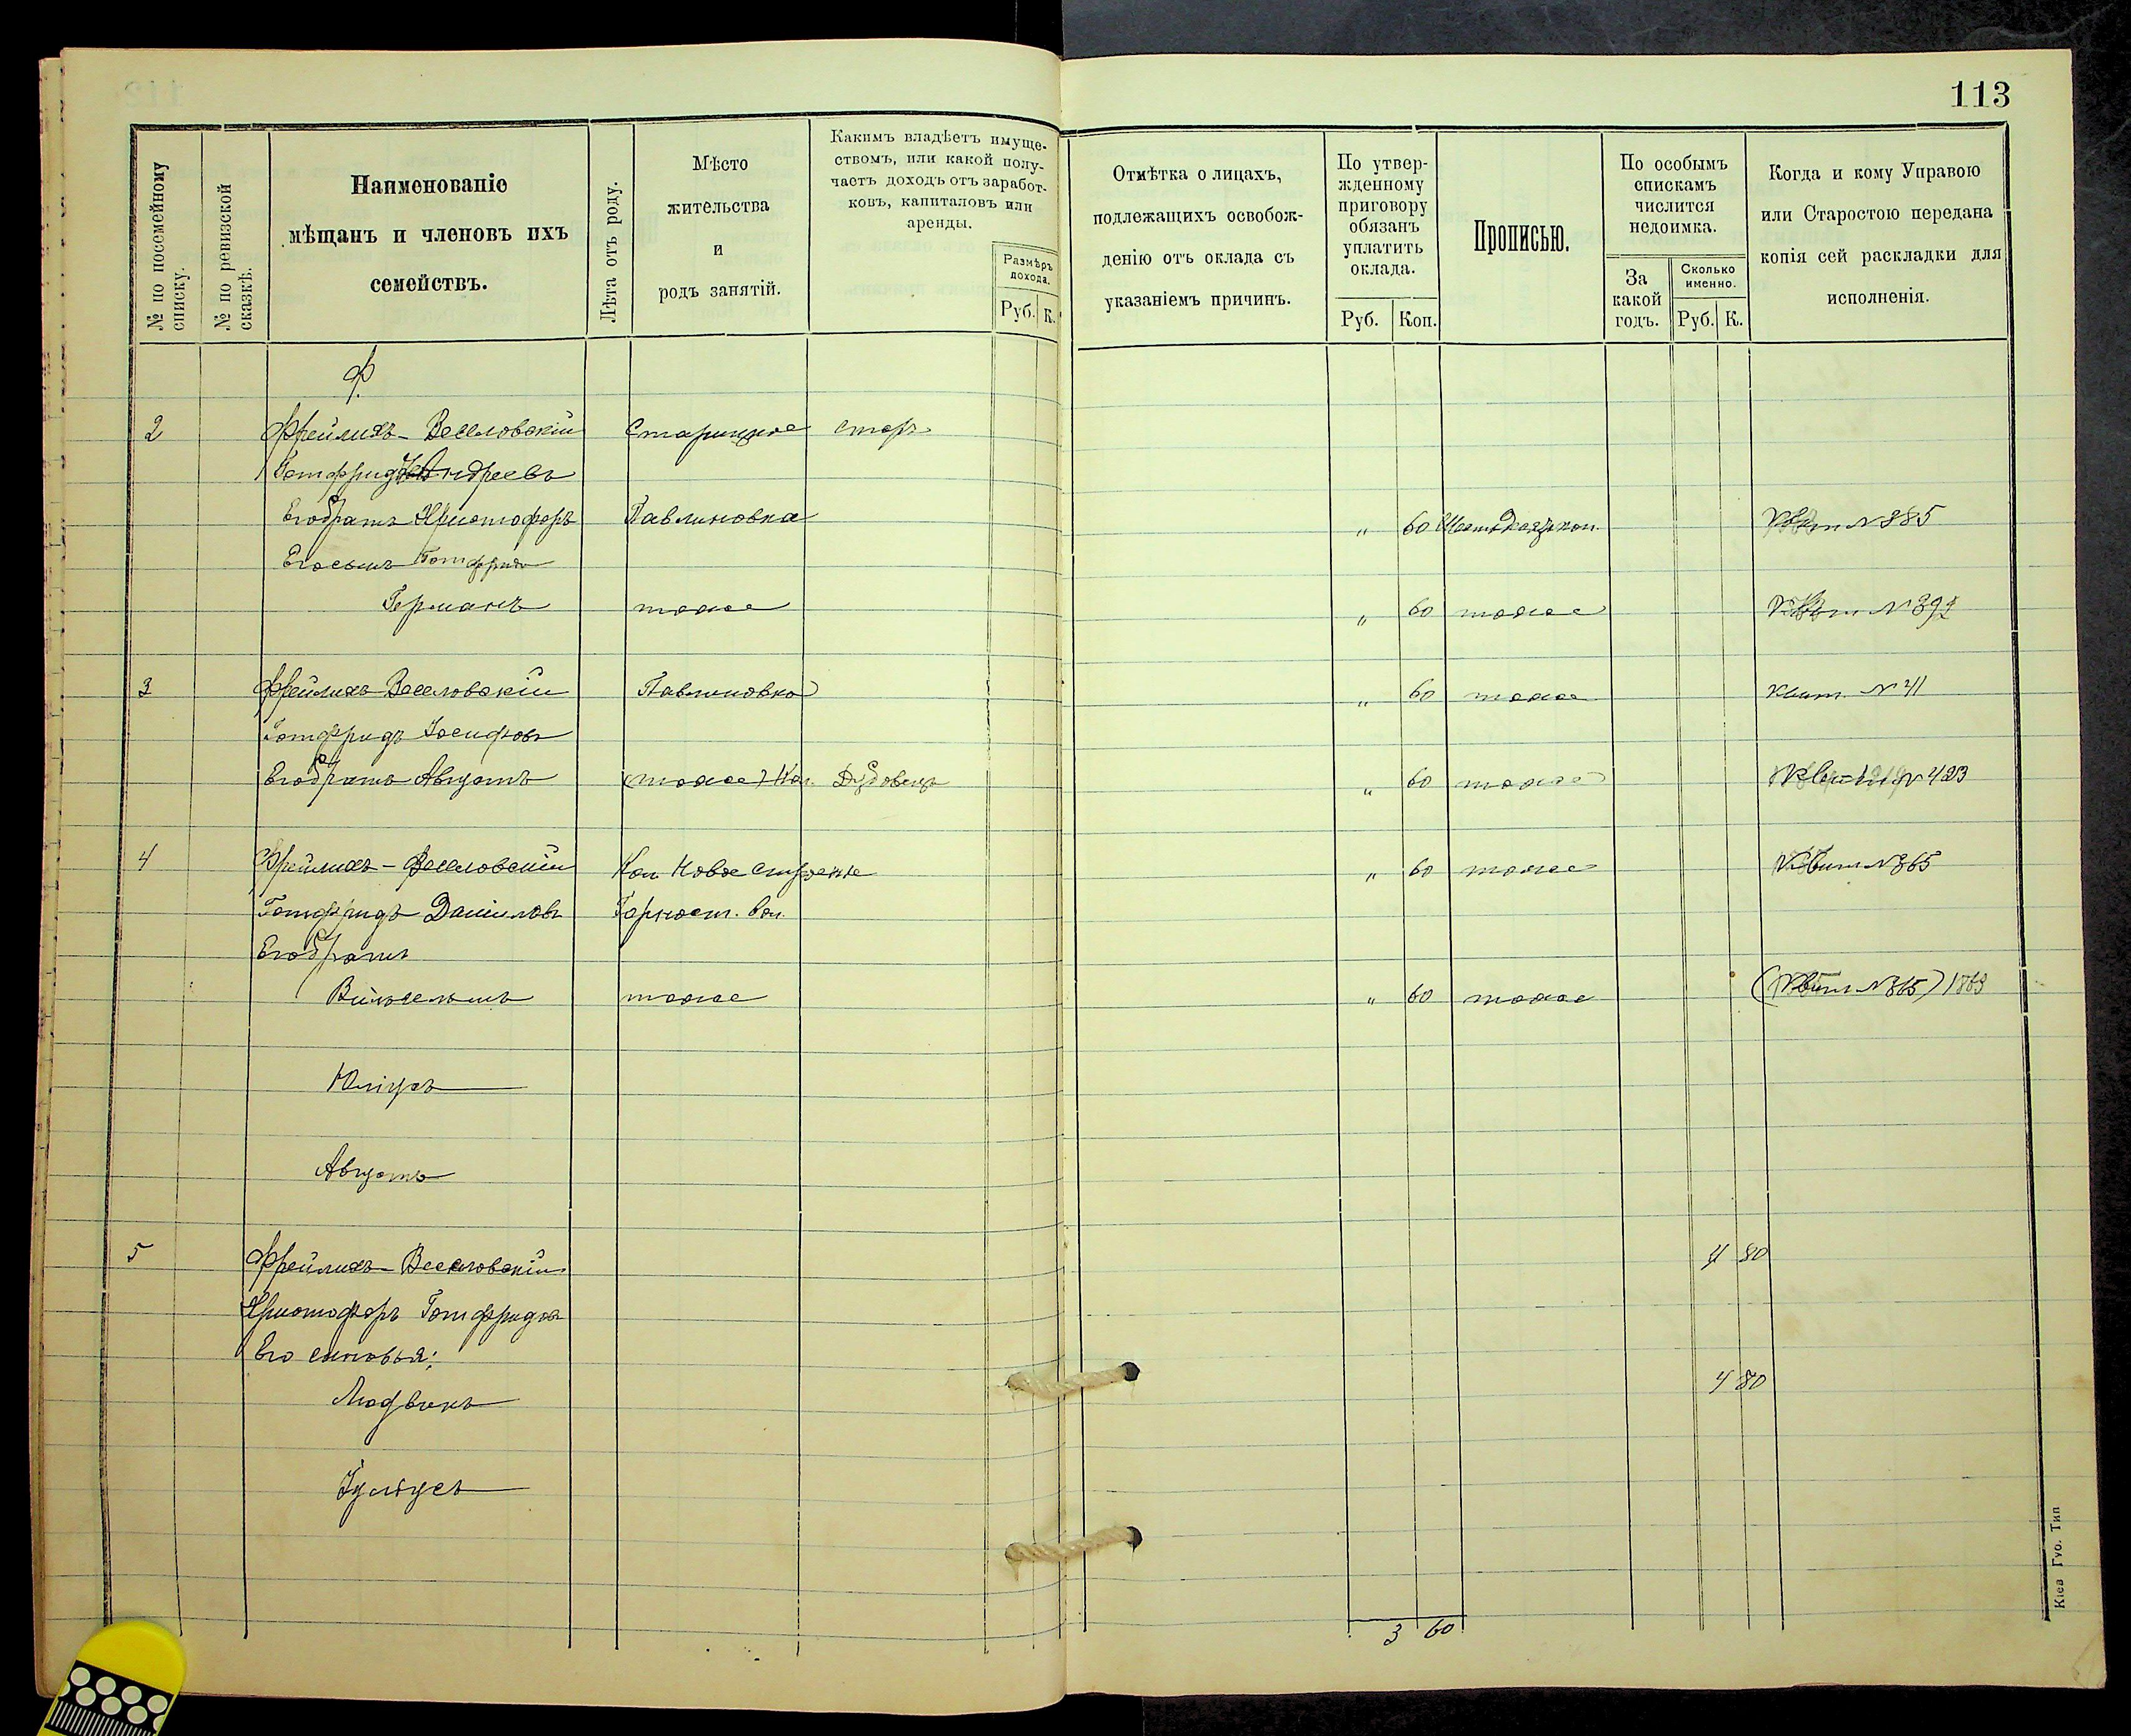 113
№ по посемейному списку.
№ по ревизской сказкѣ.
Наименованіе
мѣщанъ и членовъ ихъ
семействъ.
Лѣта отъ роду.
Мѣсто
жительства
и
родъ занятій.
Какимъ владѣетъ имуще-
ствомъ, или какой полу-
чаетъ доходъ отъ заработ-
ковъ, капиталовъ или
аренды.
Размѣръ
дохода.
Руб. К.
Отмѣтка о лицахъ,
подлежащихъ освобож-
денію отъ оклада съ
указаніемъ причинъ.
По утвер-
жденному
приговору
обязанъ
уплатить
оклада.
Руб. Коп.
Прописью.
По особымъ
спискамъ
числится
недоимка.
За
какой
годъ.
Сколько
именно.
Руб. К.
Когда и кому Управою
или Старостою передана
копія сей раскладки для
исполненія.
Ф.
2 Фрейлихъ-Веселовскій
Готфридъ Андреевъ
Его братъ Христофоръ Павлиновка „ 60 Шестьдесят коп. Квит № 385
Его сынъ Готфридъ
Германъ тоже „ 60 тоже Квит №
3 Фрейлихъ Веселовскій Павлиновка „ 60 тоже Квит. № 41
Готфридъ Іосифовъ
Его братъ Августъ (тоже) Кол. „ 60 тоже № 423
4 Фрейлихъ-Веселовскій Кол Новое „ 60 тоже Квит № 365
Готфридъ Даниловъ Горност. вол.
Его братъ
Вильгельмъ тоже „ 60 тоже (Квит № 365)
Юліусъ
Августъ
5 Фрейлихъ-Веселовскій 4 80
Христофоръ Готфридовъ
Его сыновья:
Людвикъ 4 80
Іуліусъ
3 60
Кіев Губ. Тип